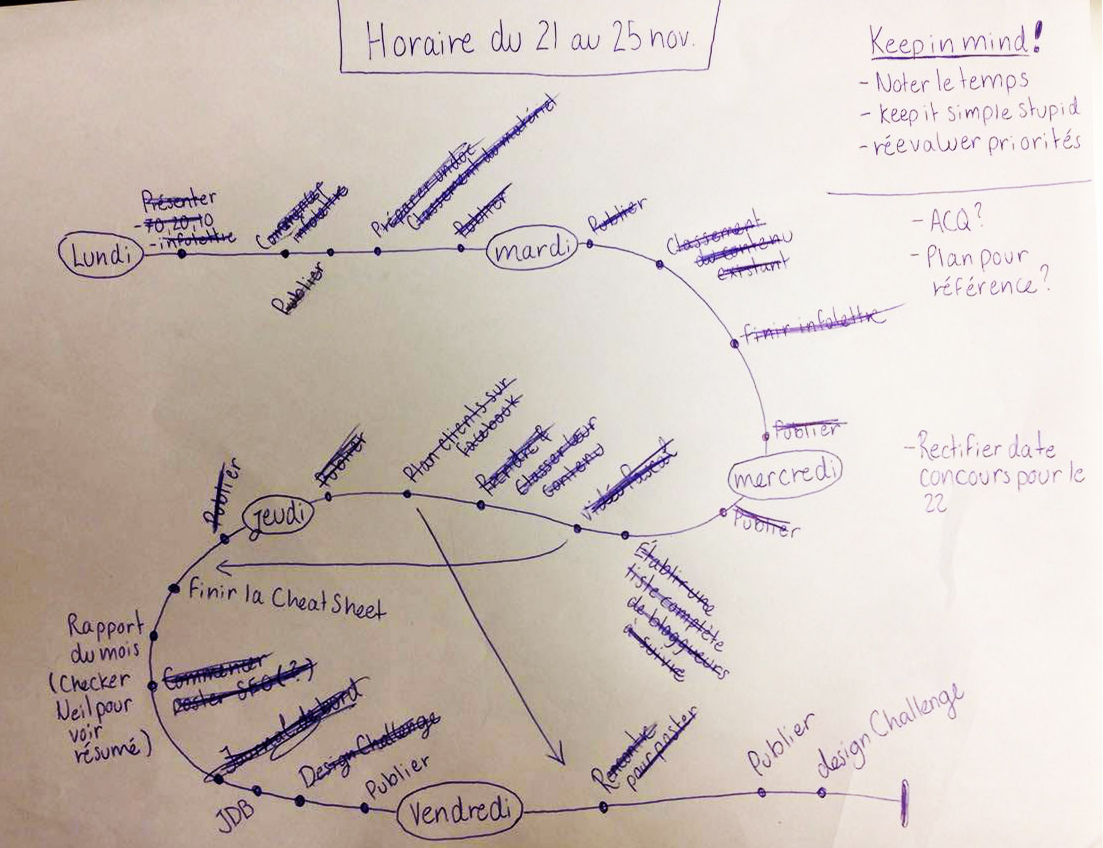 Horaire du 21 au 25 nov.
Keep in mind!
- Noter le temps
- keep it simple stupid
- réevaluer priorités
- ACQ?
- Plan pour
référence?
- Rectifier date
concours pour le
22
Lundi
Présenter
- 70,20,10
- infolettre
Commenter
infolettre
Publier
Préparer
Classement du matériel
Publier
mardi
Publier
Classement
du contenu
existant
finir infolettre
Publier
mercredi
Publier
Établir une
liste complète
de bloggueurs
à suivre
vidéo
Classer leur
contenu
Plan clients sur
facebook
Publier
jeudi
Publier
Finir la Cheat Sheet
Rapport
du mois
(Checker
Neil pour
voir
résumé)
Commencer
poster SEO (?)
Journal de bord
JDB
Design Challenge
Publier
Vendredi
Rencontre
pour poster
Publier
design Challenge